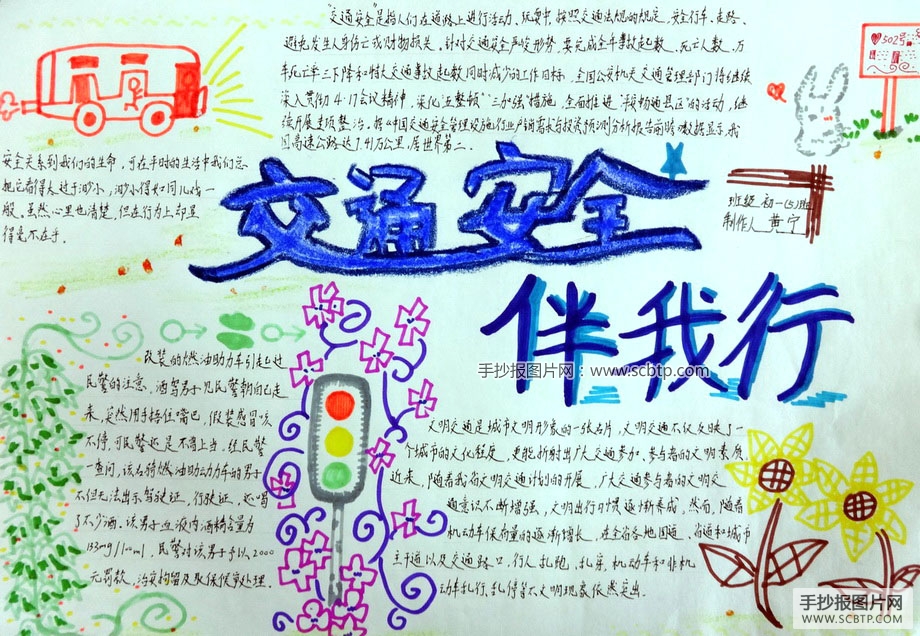 "交通安全"是指人们在道路上进行活动、玩耍中,按照交通法规的规定,安全行车、走路、
避免发生人身伤亡或财物损失。针对交通安全严峻形势,要完成全年事故起数、死亡人数、万
车死亡率三下降和特大交通事故起数同时减少的工作目标,全国公安机关交通管理部门将继续
深入贯彻4·17会议精神,深化"五整顿""三加强"措施,全面推进"平安畅通县区"的活动,继
续开展专项整治。据《中国交通安全管理设施行业产销需求与投资预测分析报告前瞻》数据显示,我
国高速公路达7.41万公里,居世界第二。
502号
安全关系到我们的生命,可在平时的生活中我们总
把它看得太过于渺小,渺小得如同儿戏一
般。虽然心里也清楚,但在行为上却显
得毫不在乎。
交通安全
班级 初一(5)班
制作人 黄宁
伴我行
手抄报图片网:www.scbtp.com
改装的燃油助力车引起过
民警的注意。酒驾男子见民警朝自己走
来,竟然用手捂住嘴巴,假装感冒咳
不停,可民警还是不得上当。经民警
一查问,该名骑燃油助动力车的男子
不但无法出示驾驶证、行驶证,还喝
了不少酒。该男子血液内酒精含量为
133mg/100ml,民警对该男子处以2000
元罚款,治安拘留及取保候审处理。
文明交通是城市文明形象的一张名片,文明交通不仅反映了一
个城市的文化程度,更能折射出广大交通参加、参与者的文明素质。
近来,随着我省文明交通计划的开展,广大交通参与者的文明交
通意识不断增强,文明出行习惯逐渐养成,然而,随着
机动车保有量的逐渐增长,在全省各地国道、省道和城市
主干道以及交通路口,行人乱跑、乱穿、机动车和非机
动车乱行、乱停等不文明现象依然突出。
手抄报图片网
WWW.SCBTP.COM